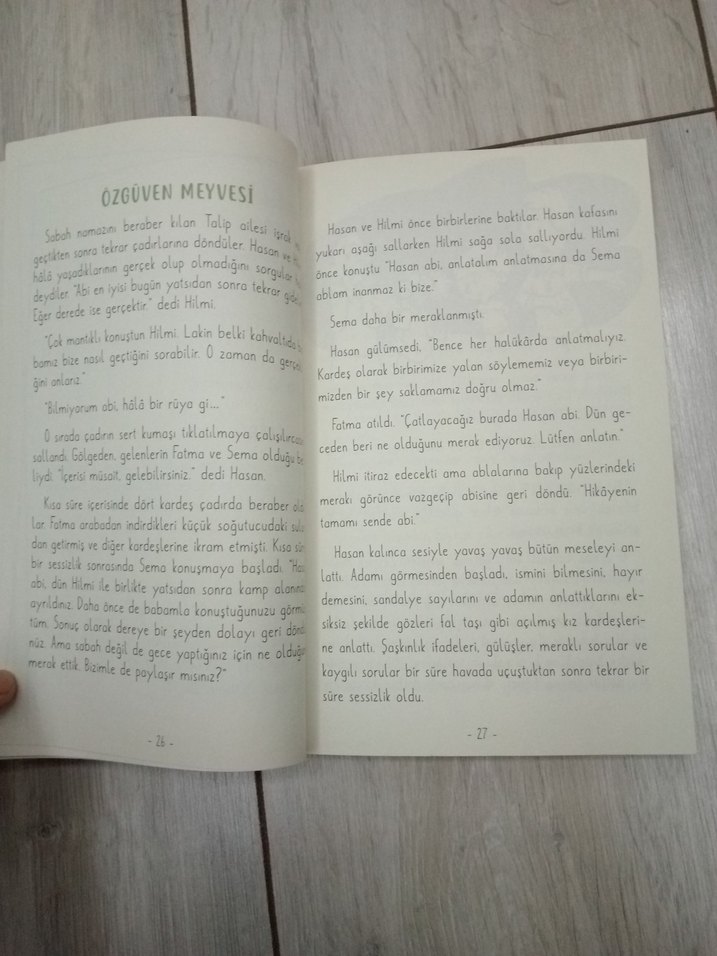 ÖZGÜVEN MEYVESİ
Sabah namazını beraber kılan Talip ailesi işrak
geçtikten sonra tekrar çadırlarına döndüler. Hasan ve
hâlâ yaşadıklarının gerçek olup olmadığını sorgular
deydiler. "Abi en iyisi bugün yatsıdan sonra tekrar
Eğer derede ise gerçektir." dedi Hilmi.
"Çok mantıklı konuştun Hilmi. Lakin belki kahvaltıda
bamız bize nasıl geçtiğini sorabilir. O zaman da
ğini anlarız."
"Bilmiyorum abi, hâlâ bir rüya gi..."
O sırada çadırın sert kumaşı tıklatılmaya
sallandı. Gölgeden, gelenlerin Fatma ve Sema olduğu
liydi. "İçerisi müsait, gelebilirsiniz." dedi Hasan.
Kısa süre içerisinde dört kardeş çadırda beraber
lar. Fatma arabadan indirdikleri küçük soğutucudaki
dan getirmiş ve diğer kardeşlerine ikram etmişti. Kısa
bir sessizlik sonrasında Sema konuşmaya başladı. 
abi, dün Hilmi ile birlikte yatsıdan sonra kamp
ayrıldınız. Daha önce de babamla konuştuğunuzu
tüm. Sonuç olarak dereye bir şeyden dolayı geri
nüz. Ama sabah değil de gece yaptığınız için ne
merak ettik. Bizimle de paylaşır mısınız?"
- 26 -
Hasan ve Hilmi önce birbirlerine baktılar. Hasan kafasını
yukarı aşağı sallarken Hilmi sağa sola sallıyordu. Hilmi
önce konuştu "Hasan abi, anlatalım anlatmasına da Sema
ablam inanmaz ki bize."
Sema daha bir meraklanmıştı.
Hasan gülümsedi, "Bence her halükârda anlatmalıyız.
Kardeş olarak birbirimize yalan söylememiz veya birbiri-
mizden bir şey saklamamız doğru olmaz."
Fatma atıldı. "Çatlayacağız burada Hasan abi. Dün ge-
ceden beri ne olduğunu merak ediyoruz. Lütfen anlatın."
Hilmi itiraz edecekti ama ablalarına bakıp yüzlerindeki
merakı görünce vazgeçip abisine geri döndü. "Hikâyenin
tamamı sende abi."
Hasan kalınca sesiyle yavaş yavaş bütün meseleyi an-
lattı. Adamı görmesinden başladı, ismini bilmesini, hayır
demesini, sandalye sayılarını ve adamın anlattıklarını ek-
siksiz şekilde gözleri fal taşı gibi açılmış kız kardeşleri-
ne anlattı. Şaşkınlık ifadeleri, gülüşler, meraklı sorular ve
kaygılı sorular bir süre havada uçuştuktan sonra tekrar bir
süre sessizlik oldu.
- 27 -